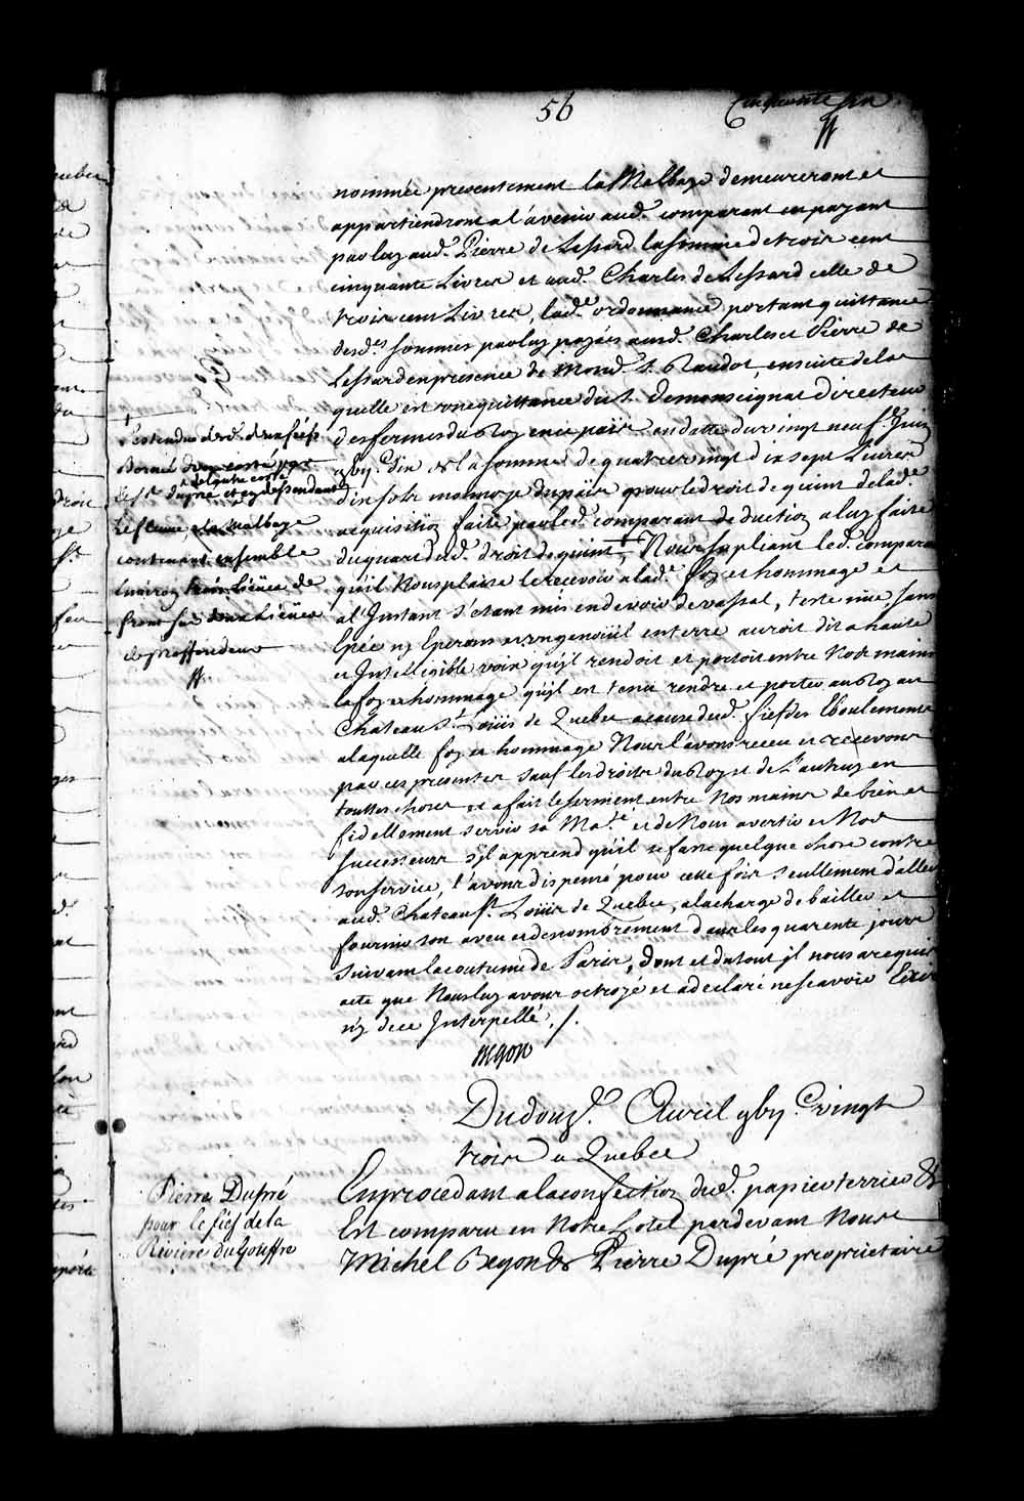 56
Cinquante six
nommée presentement la Malbaye demeureront et
appartiendront a l'avenir aud. comparant en payant
par luy aud. Pierre de Lessard la somme de trois cent
cinquante Livres et aud. Charles de Lessard celle de
trois cent Livres, lad.e ordonnance portant quittance
desd.es sommes par luy payées ausd. Charles et Pierre de
Lessard en presence de Mond. S. Raudot ensuite de la
quelle est une quittance du S. demonseignat directeur
des fermes du Roy en ce païs en datte du vingt neuf Juin
gbij. dix de la somme de quatre vingt dix sept Livres
dix sols monnoye du païs pour le droit de quint de lad.e
acquisition faite par led. comparant deduction a luy faite
du quart dud. droit de quint, Nous supliant led. comparant
qu'il Nous plaise le recevoir a lad.e foy et hommage et
a l'Instant s'etant mis en devoir de vassal, teste nüe, sans
Epée ny Eperons et un genoüil en terre auroit dit a haute
et Intelligible voix qu'il rendoit et portoit entre Nos mains
la foy et hommage qu'il est tenu rendre et porter au Roy au
Chateau St. Loüis de Quebec a cause dud. fief des Eboulemens
a laquelle foy et hommage Nous l'avons receu et recevons
par ces presentes sauf les droits du Roy et de l'autruy en
touttes choses et a fait le serment entre Nos mains de bien et
fidellement servir sa Ma.té et de Nous avertir et Nos
successeurs s'il apprend qu'il se fasse quelque chose contre
son service, l'avons dispensé pour cette fois seullement d'aller
aud. Chateau St. Loüis de Quebec, a la charge de bailler et
fournir son aveu et denombrement dans les quarente jours
suivant la coutume de Paris, dont et du tout il nous a requis
acte que Nous luy avons octroyé et a declaré ne scavoir Ecrire
ny signer de ce Interpellé ./.
Begon
l'etendue desd. deux fiefs
Bornés d'un costé par
le Sr. dupré et en dessendant
d'autre costé
le fleuve, a la Malbaye
contenant ensemble
environ trois Lieües de
front sur deux Lieües
de proffondeur
Du douze Avril gbij. Cvingt
trois a Quebec
Pierre Dupré
pour le fief de la
Riviere du Gouffre
En procedant a la confection dud. papier terrier &
Est comparu en Notre hotel pardevant Nous
Michel Begon & Pierre Dupré proprietaire